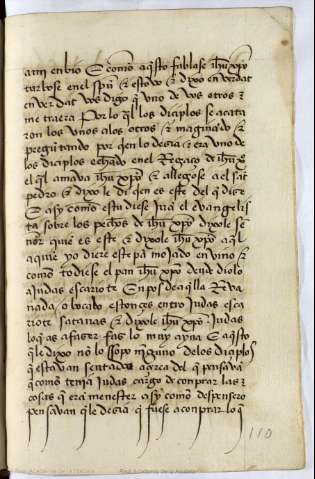 a mj enbio E como aq̃sto fablase ihũ xp̃o
turbose enel spũ & estovo & dixo en verdat
en verdat vos digo q̃ vno de vos otros
me traera Por lo q̃l los diçiplos se acata
ron los vnos alos otros & maginãdo &
pregũtando por quien lo desia & era vno de
los diçiplos echado enel Regaço de ihũ xp̃o
el q̃l amava ihũ xp̃o & allegose a el sãt
pedro & dixo le di quien es este del q̃ dise
E asy como estudiese juã el evangelis
ta sobre los pechos de ihũ xp̃o dixole se
ñor quiẽ es este & dixole ihũ xp̃o aq̃l
aquiẽ yo diere este pã mojado en vino &
como todiese el pan ihũ xp̃o dende diolo
ajudas escariote E enpos de aq̃lla Reva
nada / o bocado estonçes entro judas esca
riote satanas & dixole ihũ xp̃o . judas
lo q̃ as afaser fas lo muy ayna E aq̃sto
q̃ le dixo nõ lo sopo njnguno delos diçiplos
q̃ estavan sentados açerca del q̃ pensavã
q̃ como tenja judas cargo de conprar las
cosas q̃ era menester asy como despensero
pensavan q̃ le desia q̃ fuese aconprar lo q̃
110